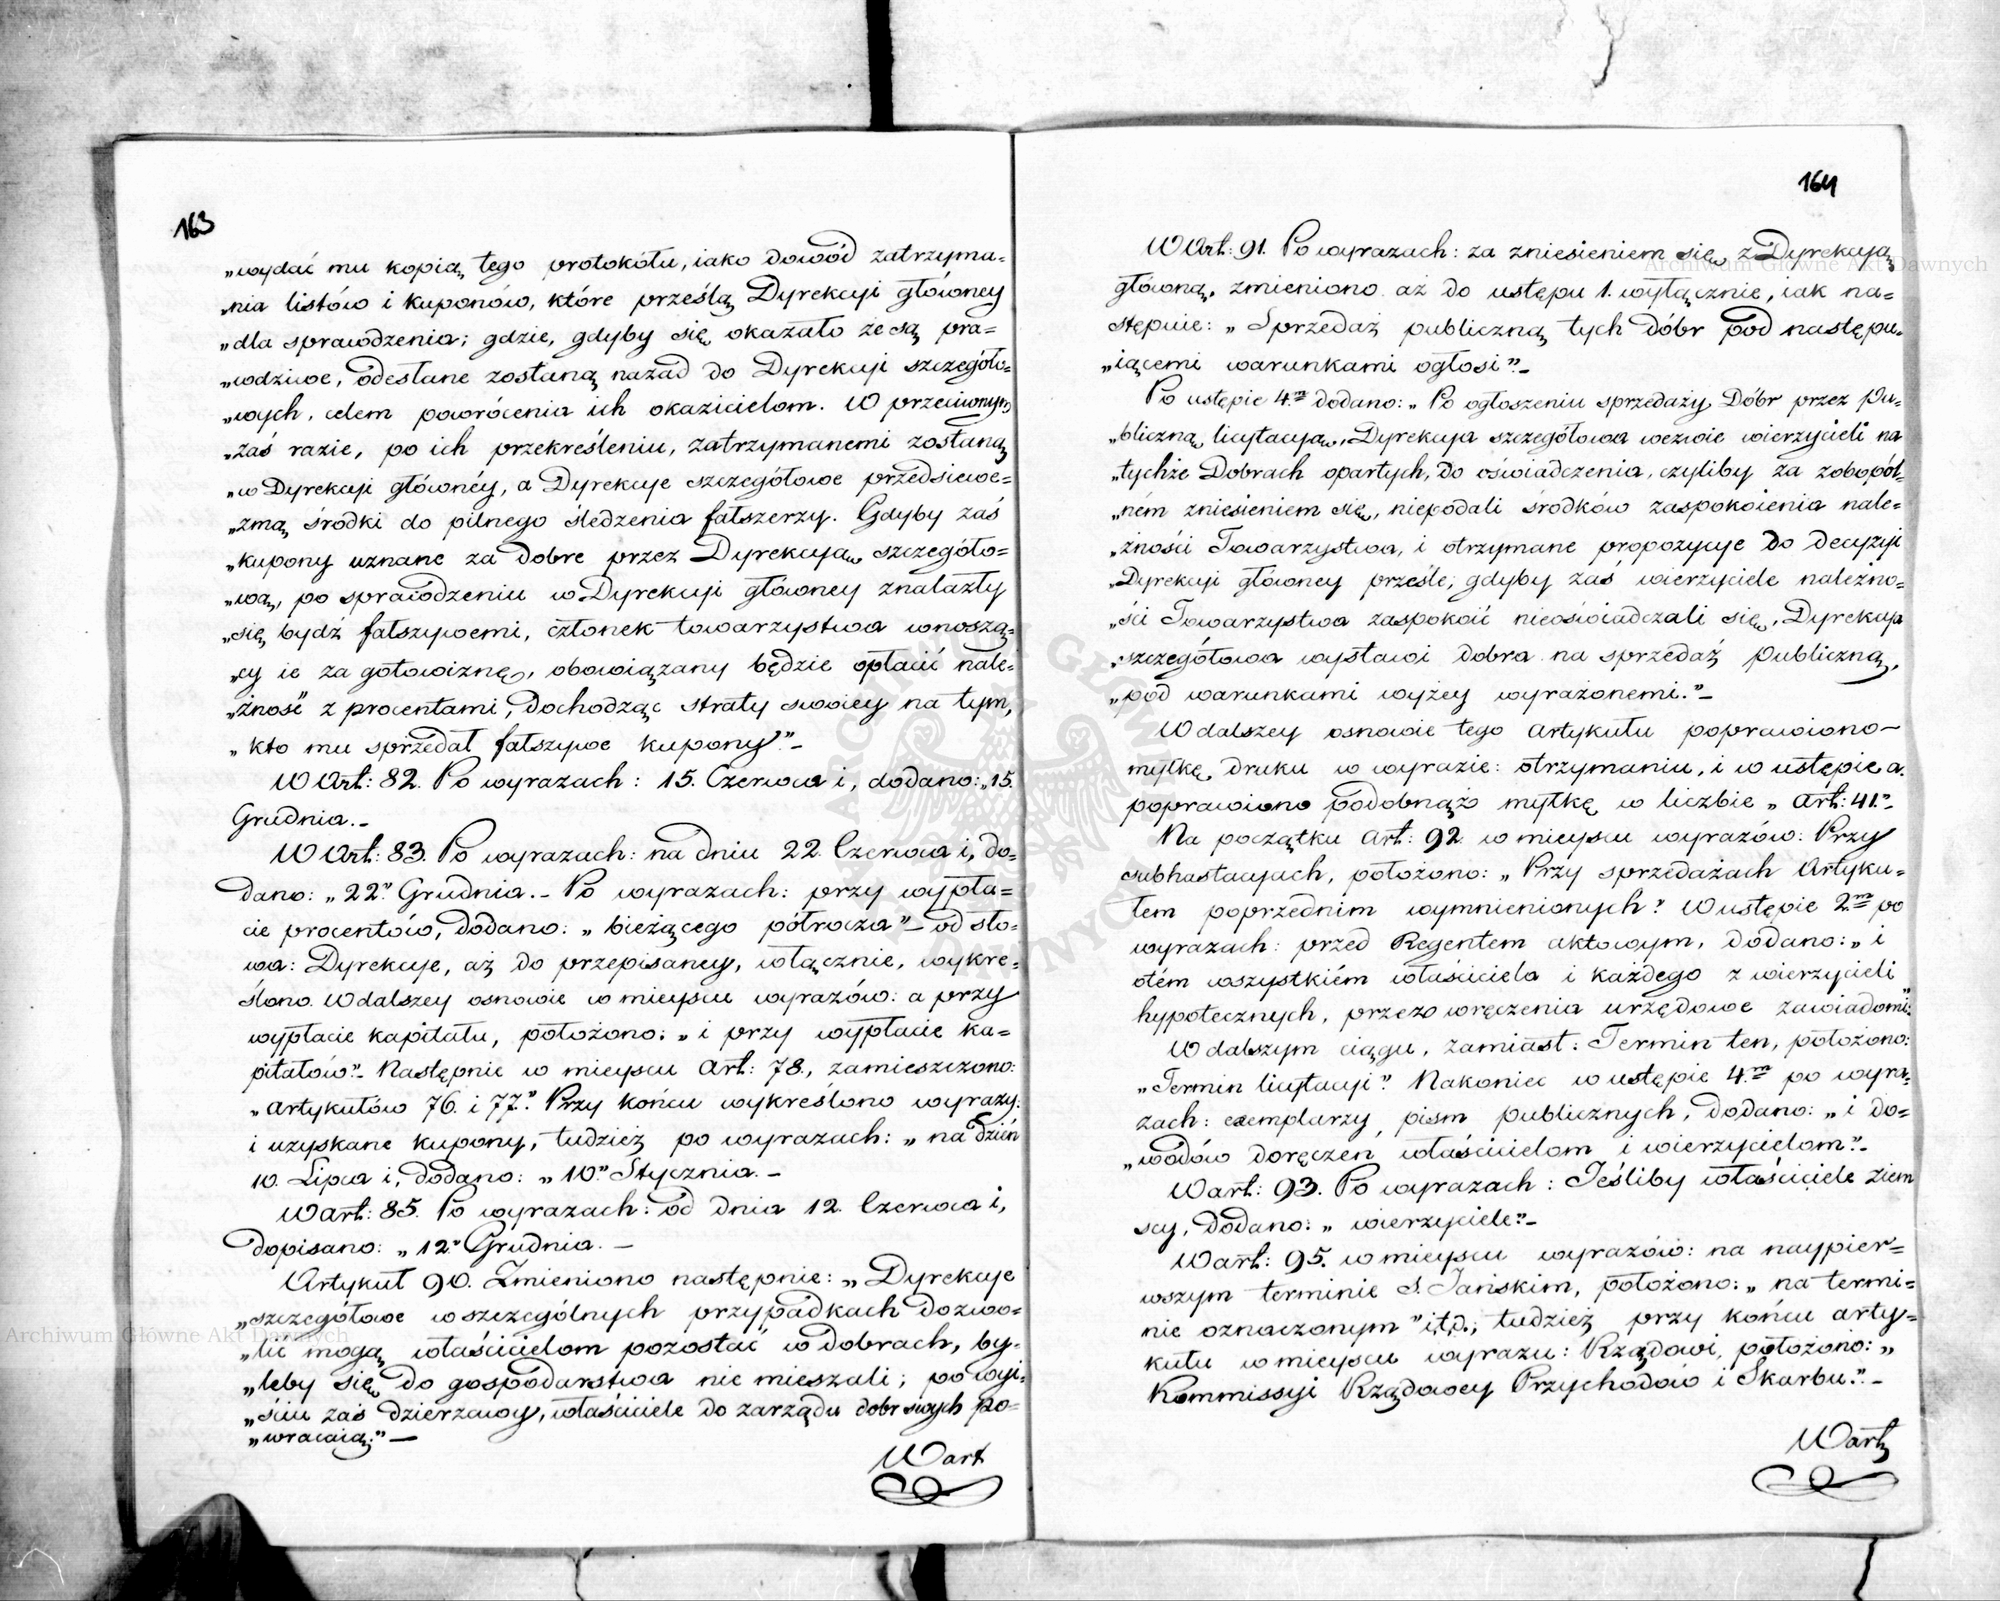 163
„wydać mu kopią tego protokółu, iako dowód zatrzyma=
„nia listów i kuponów, które prześlą Dyrekcyi główney
„dla sprawdzenia; gdzie, gdyby się okazało że są pra=
„wdziwe, odesłane zostaną nazad do Dyrekcyi szczegóło=
„wych, celem powrócenia ich okazicielom. W przeciwnym
„zaś razie, po ich przekreśleniu, zatrzymanemi zostaną
„w Dyrekcyi główney, a Dyrekcye szczegółowe przedsiewe=
„zmą środki do pilnego śledzenia fałszerzy. Gdyby zaś
„kupony uznane za dobre przez Dyrekcyą szczegóło=
„wą, po sprawdzeniu w Dyrekcyi główney znalazły
„się bydź fałszywemi, członek towarzystwa wnoszą=
„cy ie za gotowiznę, obowiązany będzie opłacić nale=
„żność z procentami, dochodząc straty swoiey na tym,
„kto mu sprzedał fałszywe kupony.”–
W Art: 82. Po wyrazach: 15. Czerwca i, dodano: „15.
Grudnia.–
W Art: 83. Po wyrazach: na dniu 22. Czerwca i, do=
dano: „22.” Grudnia.– Po wyrazach: przy wypła=
cie procentów, dodano: „bieżącego półrocza”– od sło=
wa: Dyrekcye, aż do przepisaney, włącznie, wykre=
ślono. W dalszey osnowie w mieyscu wyrazów: a przy
wypłacie kapitału, położono: „i przy wypłacie ka=
pitałów”– Następnie w mieyscu Art: 78., zamieszczono:
„Artykułów 76. i 77.” Przy końcu wykreślono wyrazy:
i uzyskane kupony, tudzież po wyrazach: „na dzień
10. Lipca i, dodano: „10.” Stycznia.–
W art: 85. Po wyrazach: od dnia 12. Czerwca i,
dopisano: „12.” Grudnia.–
Artykuł 90. Zmieniono następnie: „Dyrekcye
„szczegółowe w szczególnych przypadkach dozwo=
„lić mogą właścicielom pozostać w dobrach, by=
„leby się do gospodarstwa nie mieszali; po wyi=
„ściu zaś dzierzawy, właściciele do zarządu dobr swych po=
„wracaią.”–
W art
164
W Art: 91. Po wyrazach: za zniesieniem się z Dyrekcyą
główną, zmieniono aż do ustępu 1. wyłącznie, iak na=
stępuie: „Sprzedaż publiczną tych dóbr pod następu=
„iącemi warunkami ogłosi”–
Po ustępie 4.m dodano: „Po ogłoszeniu sprzedaży Dóbr przez Pu=
„bliczną licytacyą, Dyrekcya szczegółowa wezwie wierzycieli na
„tychże Dobrach opartych, do oświadczenia, czyliby za zobopól=
„ném zniesieniem się, niepodali środków zaspokoienia nale=
„żności Towarzystwa, i otrzymane propozycye do decyzyi
„Dyrekcyi główney prześle; gdyby zaś wierzyciele należno=
„ści Towarzystwa zaspokoić nieoświadczali się, Dyrekcya
„szczegółowa wystawi dobra na sprzedaż publiczną,
„pod warunkami wyżey wyrażonemi.”–
W dalszey osnowie tego artykułu poprawiono–
myłkę druku w wyrazie: otrzymaniu, i w ustępie a.
poprawiono podobnąż myłkę w liczbie „Art: 41.”–
Na początku Art: 92. w mieyscu wyrazów: Przy
subhastacyach, położono: „Przy sprzedażach Artyku=
łem poprzednim wymnienionych” W ustępie 2.m po
wyrazach: przed Regentem aktowym, dodano: „i
otém wszystkiém właściciela i każdego z wierzycieli
hypotecznych, przez wręczenia urzędowe zawiadomi”.
W dalszym ciągu, zamiast: Termin ten, położono:
„Termin licytacyi”. Nakoniec w ustępie 4.m po wyra=
zach: exemplarzy pism publicznych, dodano: „i do=
„wodów doręczeń właścicielom i wierzycielom”–
W art: 93. Po wyrazach: Jeśliby właściciele ziem
scy, dodano: „wierzyciele”–
W art: 95. w mieyscu wyrazów: na naypier=
wszym terminie S. Jańskim, położono: „na termi=
nie oznaczonym” i t.d., tudzież przy końcu arty=
kułu w mieyscu wyrazu: Rządowi, położono: „
Kommissyi Rządowey Przychodów i Skarbu.”–
W art:
Archiwum Główne Akt Dawnych
Archiwum Główne Akt Dawnych